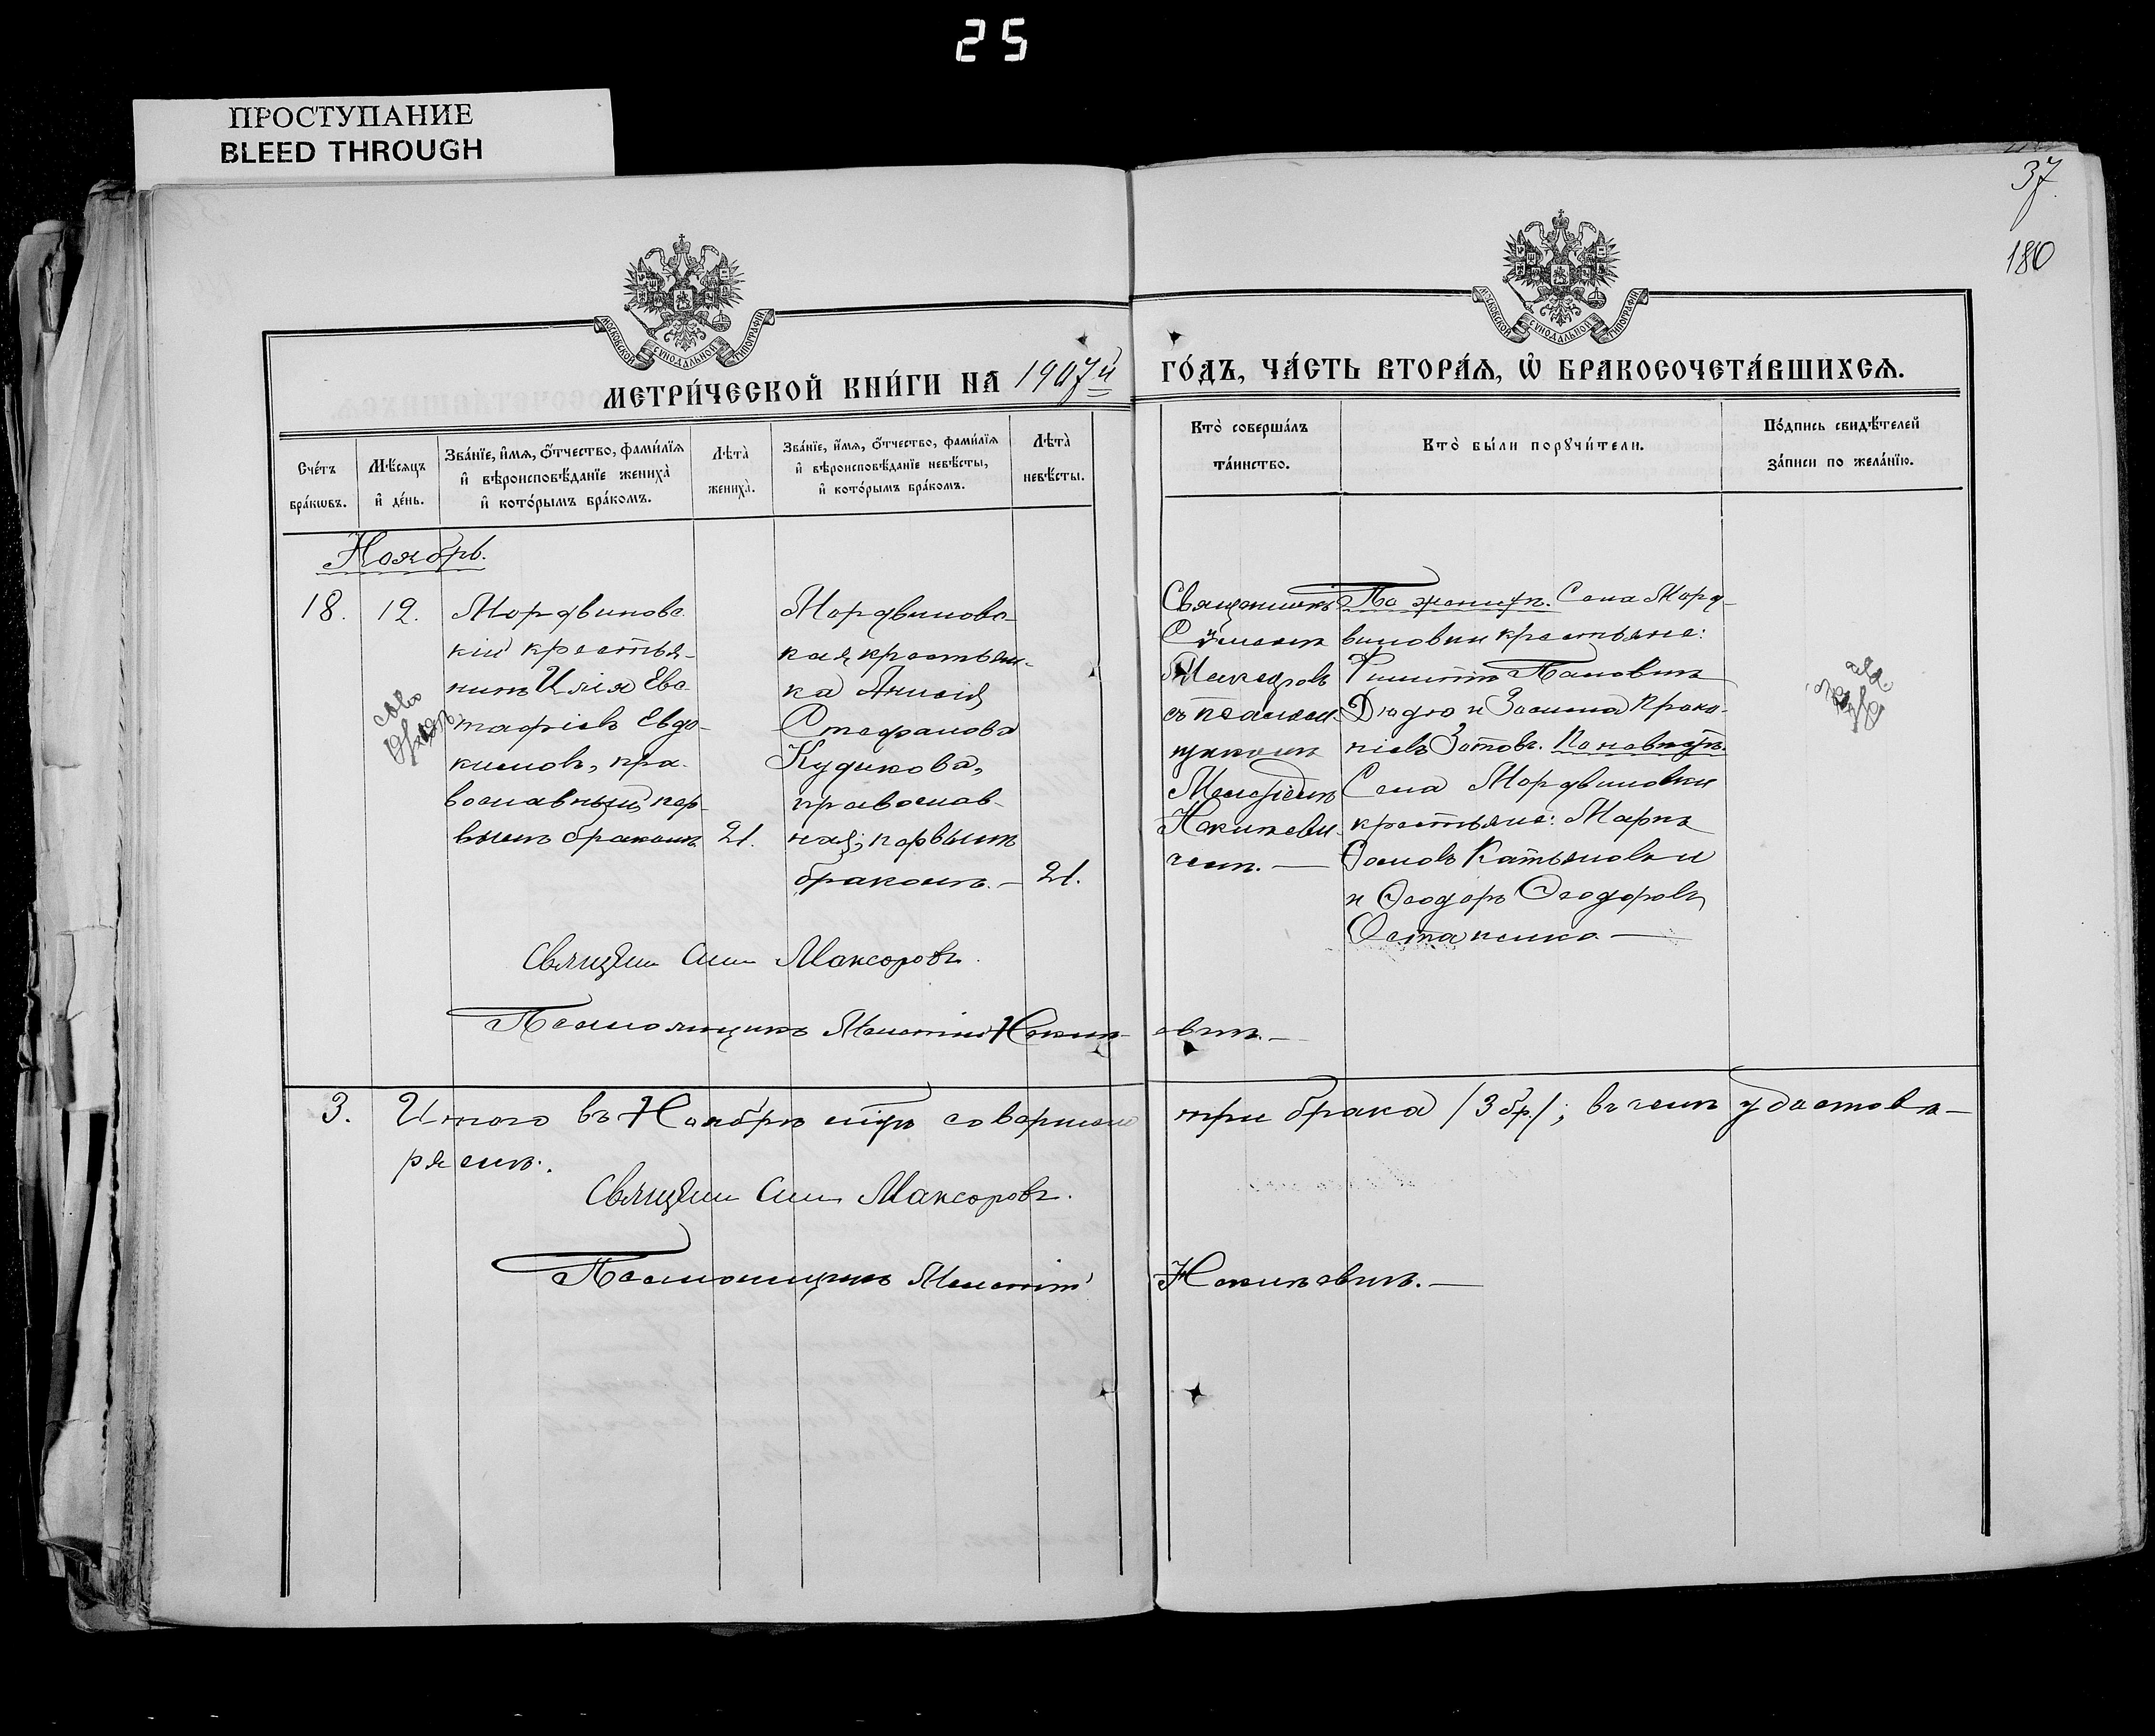 25
ПРОСТУПАНИЕ
BLEED THROUGH
37
180
МОСКОВСКОЙ СѴНОДАЛЬНОЙ ТИПОГРАФІИ
МОСКОВСКОЙ СѴНОДАЛЬНОЙ ТИПОГРАФІИ
МЕТРИ́ЧЕСКОЙ КНИ́ГИ НА̀ 1907й ГО́ДЪ, ЧА́СТЬ ВТОРА́Ѧ, Ѡ҆ БРАКОСОЧЕТА́ВШИХСѦ.
Сче́тъ
бра́кѡвъ.
Мѣ́сѧцъ
и҆ де́нь.
Зва́нїе, и҆́мѧ, ѻ҆́тчество, фами́лїѧ
и҆ вѣроисповѣ́данїе жениха̀
и҆ кото́рымъ бра́комъ.
Лѣта̀
жениха̀.
Зва́нїе, и҆́мѧ, ѻ҆́тчество, фами́лїѧ
и҆ вѣроисповѣ́данїе невѣ́сты,
и҆ кото́рымъ бра́комъ.
Лѣта̀
невѣ́сты.
Кто̀ соверша́лъ
та́инство.
Кто̀ бы́ли порꙋчи́тели.
По́дпись свидѣ́телей
за́писи по жела́нїю.
Ноябрь.
18.
12.
Мордвиновс
кій крестья-
нинъ Илія Евс
тафіевъ Евдо-
кимовъ, пра-
вославный, пер-
вымъ бракомъ
21.
Мордвиновс-
кая крестьян-
ка Анисія
Стефанова
Кудикова,
православ-
ная; первымъ
бракомъ. —
21.
Священникъ
Сѵмеонъ
Максоровъ
съ псалом-
щикомъ
Мелетіемъ
Накиневи-
чемъ. —
По женихѣ. Села Морд-
виновки крестьяне:
Филиппъ Павловичъ
Дюдю и Зосима Проко-
піевъ Зотовъ. По невѣстѣ.
Села Мордвиновки
крестьяне: Маркъ
Ѳомовъ Катьяновъ и
и Ѳеодоръ Ѳеодоровъ
Остапенко. —
Священ Сим Максоровъ.
Псаломщикъ Мелетій Накин-евичъ. —
3. Итого въ Ноябрѣ мѣс. совершено три брака /3 бр./; въ чемъ удостовѣ-
ряемъ.
Священ Сим Максоровъ.
Псаломщикъ Мелетій Накиневичъ. —